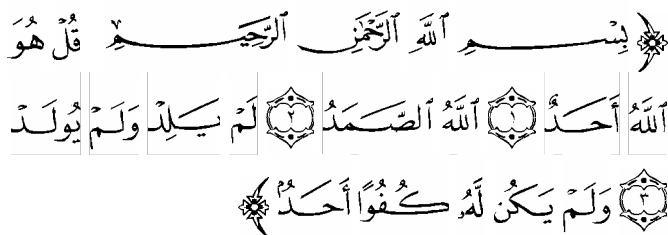 ﴿بِسْمِ ٱللَّهِ ٱلرَّحْمَٰنِ ٱلرَّحِيمِ قُلْ هُوَ
ٱللَّهُ أَحَدٌ ۝١ ٱللَّهُ ٱلصَّمَدُ ۝٢ لَمْ يَلِدْ وَلَمْ يُولَدْ
۝٣ وَلَمْ يَكُن لَّهُۥ كُفُوًا أَحَدٌۢ ﴾